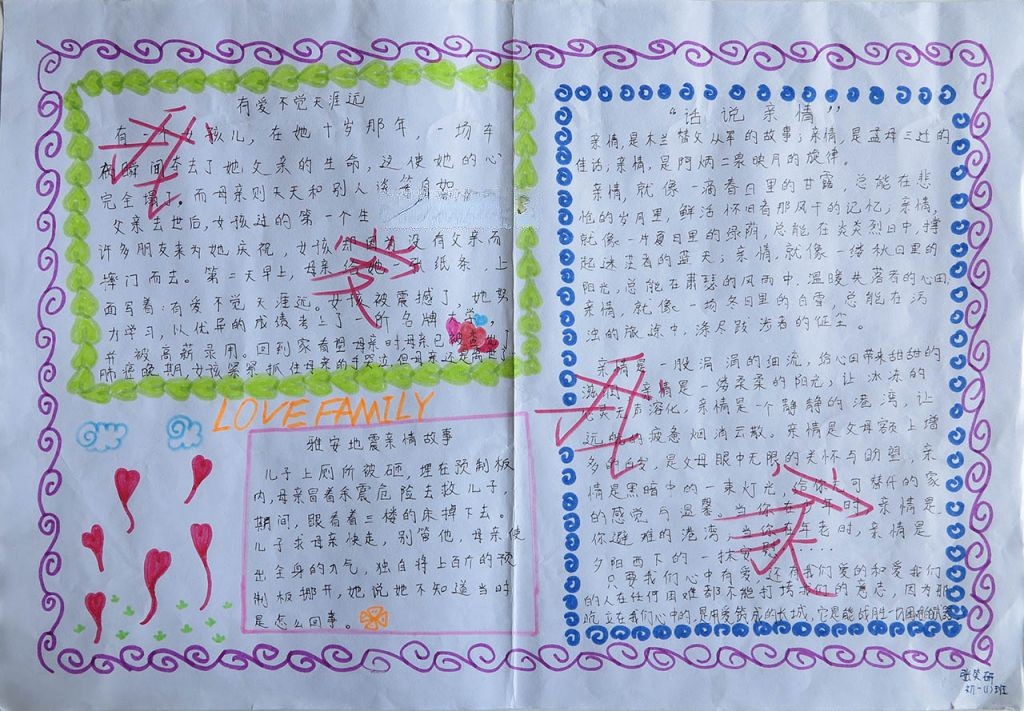 有爱不觉天涯远
有一个女孩儿，在她十岁那年，一场车
祸瞬间夺去了她父亲的生命，这使她的心
完全塌了。而母亲则天天和别人谈笑自如
父亲去世后，女孩过的第一个生
许多朋友来为她庆祝，女孩却因为没有父亲而
摔门而去。第二天早上，母亲给她一张纸条，上
面写着：有爱不觉天涯远。女孩被震撼了，她努
力学习，以优异的成绩考上了一所名牌大学，
并被高薪录用。回到家看望母亲时母亲已被查出了
肺癌晚期,女孩紧紧抓住母亲的手哭泣,但母亲还是离世了
LOVE FAMILY
雅安地震亲情故事
儿子上厕所被砸，埋在预制板
内，母亲冒着余震危险去救儿子，
期间，眼看着三楼的床掉下去。
儿子求母亲快走，别管他，母亲使
出全身的力气，独自将上百斤的预
制板挪开，她说她不知道当时
是怎么回事。
“话说亲情”
亲情，是木兰替父从军的故事；亲情，是孟母三迁的
佳话；亲情，是阿炳二泉映月的旋律。
亲情，就像一滴春日里的甘露，总能在悲
怆的岁月里，鲜活怀旧者那风干的记忆；亲情，
就像一片夏日里的绿荫，总能在炎炎烈日中，撑
起迷茫者的蓝天；亲情，就像一缕秋日里的
阳光，总能在萧瑟的风雨中，温暖失落者的心田，
亲情，就像一场冬日里的白雪，总能在污
浊的旅途中，涤尽跋涉者的征尘。
亲情是一股涓涓的细流，给心田带来甜甜的
滋润，亲情是一缕柔柔的阳光，让冰冻的
心灵无声溶化，亲情是一个静静的港湾，让
远航的疲惫烟消云散。亲情是父母额上增
多的白发，是父母眼中无限的关怀与期盟，亲
情是黑暗中的一束灯光，给你无可替代的家
的感觉与温馨。当你在少年时，亲情是
你避难的港湾，当你在年老时，亲情是
夕阳西下的一抹安慰……
只要我们心中有爱，还有我们爱的和爱我们
的人在任何困难都不能打垮我们的意志，因为那
屹立在我们心中的，是用爱筑成的长城，它是能战胜一切困难的
张笑研
初一(1)班